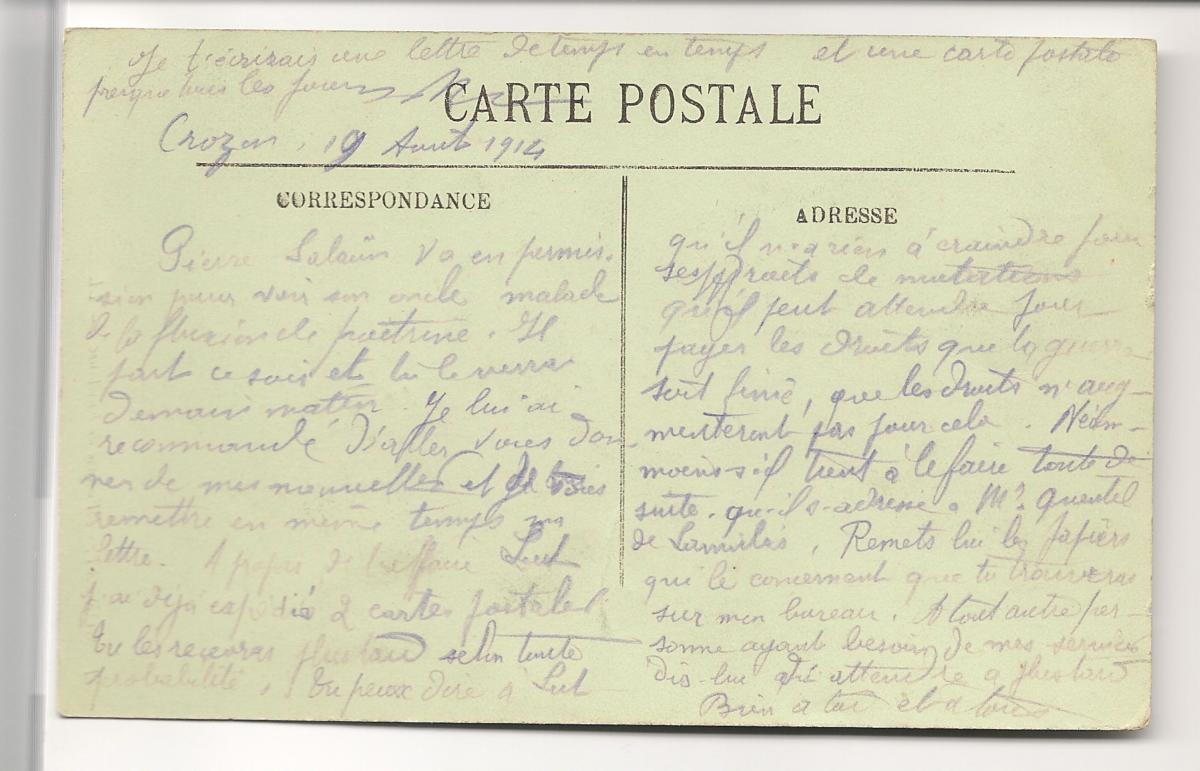 Je t'écrirais une lettre de temps en temps et une carte postale
presque tous les jours
CARTE POSTALE
Crozon, 19 Aout 1914
CORRESPONDANCE
Pierre Salaün va en permis-
sion pour voir son oncle malade
de la fluxion de poitrine. Il
part ce soir et tu le verra
demain matin. Je lui ai
recommandé d'aller vous don-
ner de mes nouvelles et de vous
remettre en même temps ma
lettre. A propos de l'affaire
j'ai déjà expédié 2 cartes postales
Tu les recevras plus tard selon toute
probabilité. Tu peux dire à
ADRESSE
qu'il n'a rien à craindre pour
ses droits de mutations
qu'il peut attendre pour
payer les droits que la guerre
soit finie, que les droits n'aug-
menteront pas pour cela. Néan-
moins s'il tient à le faire toute de
suite, qu'il s'adresse à Mr Quentel
de . Remets lui les papiers
qui le concernent que tu trouveras
sur mon bureau. A tout autre per-
sonne ayant besoin de mes services
dis-lui d'attendre à plus tard
Bien à toi et à tous